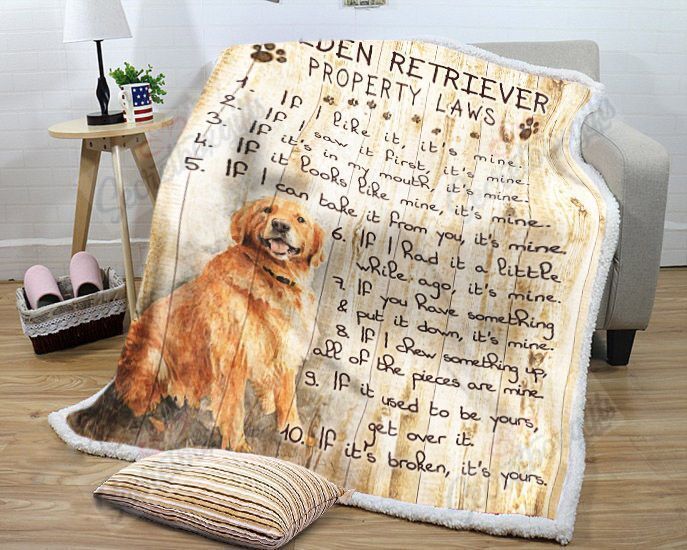 DEN RETRIEVER
PROPERTY LAWS
1. If I like it, it's mine.
2. If I saw it first, it's mine.
3. If it's in my mouth, it's mine.
4. If it looks like mine, it's mine.
5. If I can take it from you, it's mine.
6. If I had it a little
while ago, it's mine.
7. If you have something
& put it down, it's mine.
8. If I chew something up,
all of the pieces are mine
9. If it used to be yours,
get over it.
10. If it's broken, it's yours.